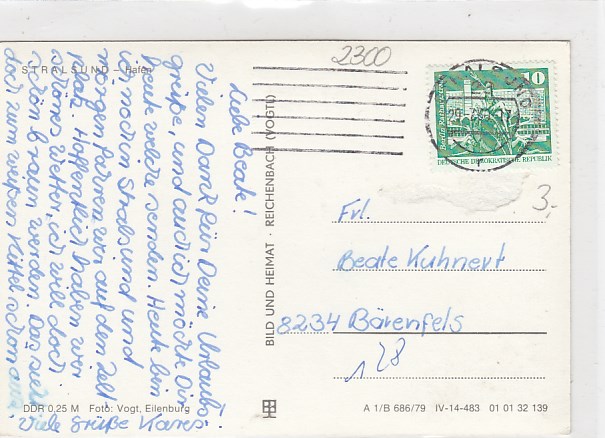 STRALSUND – Hafen
Liebe Beate!
Vielen Dank für Deine Urlaubs-
grüße, und auch ich möchte Dir
heute welche senden. Heute bin
ich noch in Stralsund und
morgen fahren wir auf den Zelt-
platz. Hoffentlich haben wir
schönes Wetter, ich will doch
schön braun werden. Das sieht
doch zum weißen Kittel schön aus
Viele Grüße
DDR 0,25 M Foto: Vogt, Eilenburg
BILD UND HEIMAT · REICHENBACH (VOGTL)
2300
STRALSUND
10
DEUTSCHE DEMOKRATISCHE REPUBLIK
3,-
Frl.
Beate Kuhnert
8234 Bärenfels
128
A 1/B 686/79 IV-14-483 01 01 32 139